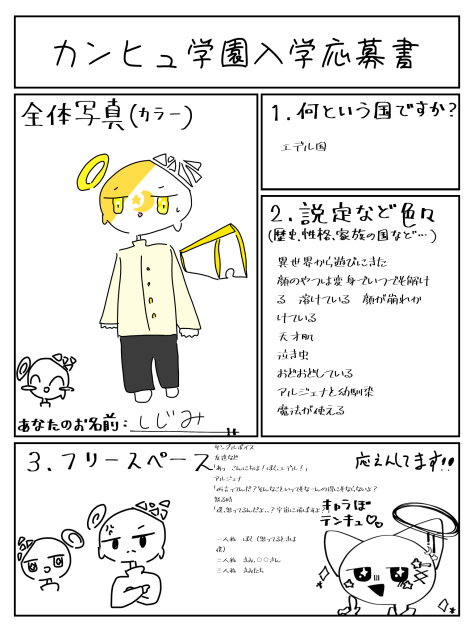 カンヒュ学園入学応募書
全体写真(カラー)
あなたのお名前:しじみ
1.何という国ですか?
エデル国
2.設定など色々
(歴史、性格、家族の国など…)
異世界から遊びにきた
顔のやつは変身でいつでも解け
る 溶けている 顔が崩れか
けている
天才肌
泣き虫
おどおどしている
アルジェナと幼馴染
魔法が使える
3.フリースペース
サンプルボイス
友達など
「あっ こんにちは!ぼく、エデル!」
アルジェナ
怒る時
一人称 ぼく(怒ってるときは
僕)
二人称 きみ、○○さん
三人称 きみたち
応えんしてます!!
キャラぼ
テンキュ♡♡